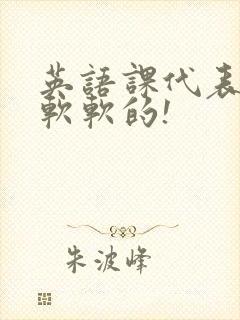 英語課代表
軟軟的!
朱波峰